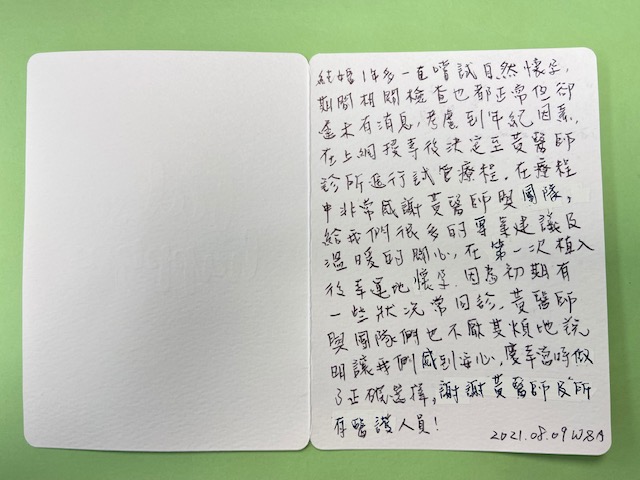 結婚1年多一直嘗試自然懷孕,
期間相關檢查也都正常但卻
遲未有消息,考慮到年紀因素,
在上網搜尋後決定至黃醫師
診所進行試管療程,在療程
中非常感謝黃醫師與團隊,
給我們很多的專業建議及
溫暖的關心,在第一次植入
後幸運地懷孕.因為初期有
一些狀況常回診,黃醫師
與團隊們也不厭其煩地說
明讓我們感到安心,慶幸當時做
了正確選擇,謝謝黃醫師及所
有醫護人員!
2021.08.09 W8A